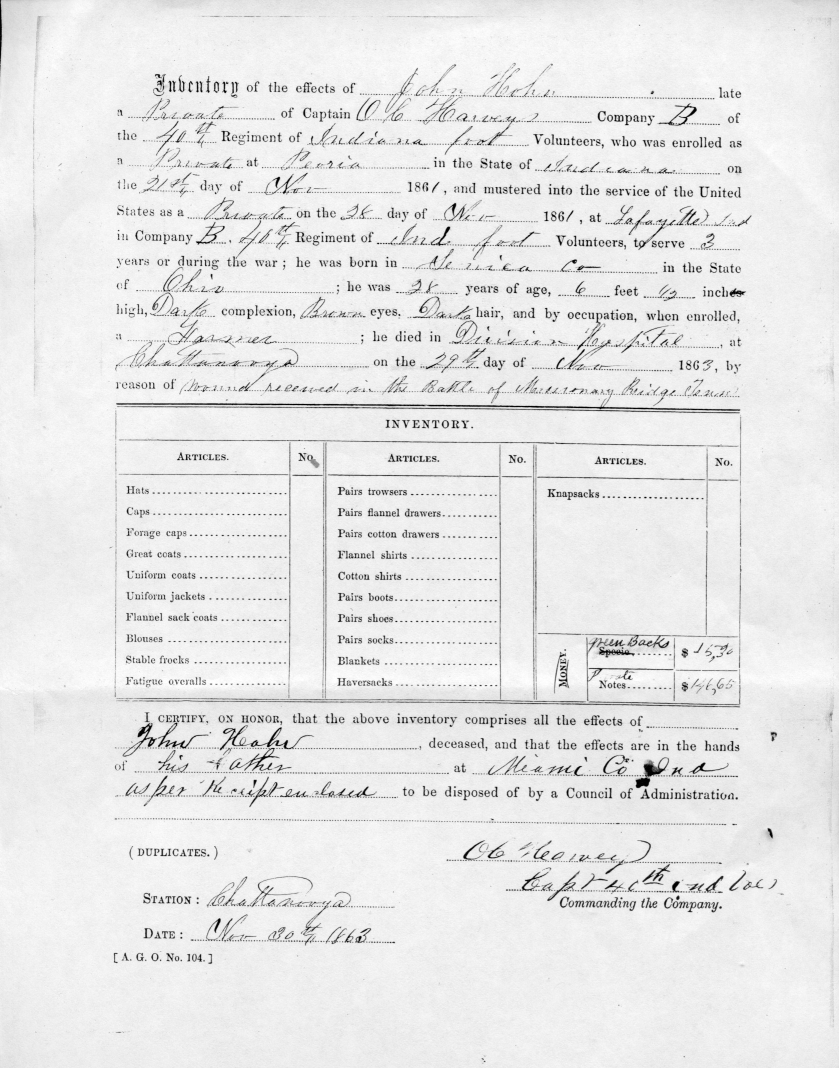 Inventory of the effects of John Hohn late
a Private of Captain O C Harveys Company B of
the 40th Regiment of Indiana foot Volunteers, who was enrolled as
a Private at Peoria in the State of Indiana on
the 21st day of Nov 1861, and mustered into the service of the United
States as a Private on the 28 day of Nov 1861, at Lafayette Ind
in Company B. 40th Regiment of Ind foot Volunteers, to serve 3
years or during the war; he was born in Senica Co in the State
of Ohio ; he was 28 years of age, 6 feet 1/2 inches
high, Dark complexion, Brown eyes, Dark hair, and by occupation, when enrolled,
a Farmer ; he died in Division Hospital , at
Chattanooga on the 29th day of Nov 1863, by
reason of wound received in the Battle of Missronary Ridge Tenn
INVENTORY.
ARTICLES. No. ARTICLES. No. ARTICLES. No.
Hats Pairs trowsers Knapsacks
Caps Pairs flannel drawers
Forage caps Pairs cotton drawers
Great coats Flannel shirts
Uniform coats Cotton shirts
Uniform jackets Pairs boots
Flannel sack coats Pairs shoes
Blouses Pairs socks MONEY. green Backs Specie $ 15,30
Stable frocks Blankets
Fatigue overalls Haversacks Notes $146,65
I CERTIFY, ON HONOR, that the above inventory comprises all the effects of
John Hohn , deceased, and that the effects are in the hands
of his Father at Miami Co Ind
as per Receipt enclosed to be disposed of by a Council of Administration.
(DUPLICATES.) O C Harvey
Capt 40th Ind Vols
STATION: Chattanooga Commanding the Company.
DATE: Nov 30th 1863
[A. G. O. No. 104.]